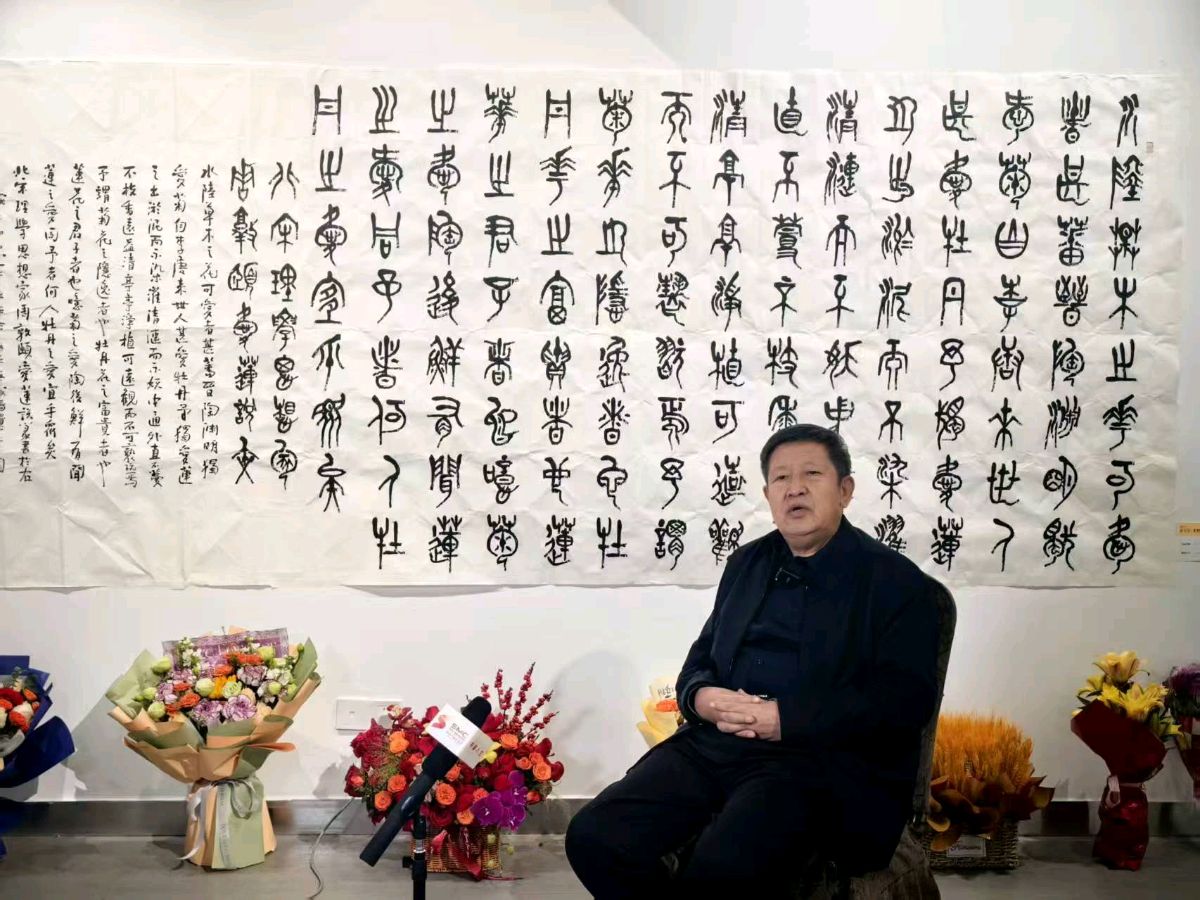 水陸艸木之華可愛
者甚蕃晉陶淵明獨
愛菊自李唐來世人
甚愛牡丹予獨愛蓮
之出淤泥而不染濯
清漣而不妖中
直不蔓不枝香
清亭亭淨植可遠觀
而不可褻翫焉予謂
菊華之隱逸者也牡
丹華之富貴者也蓮
華之君子者也噫菊
之愛陶後鮮有聞蓮
之愛同予者何人牡
丹之愛宜乎眾矣
北宋理學思想家
周敦頤愛蓮說
水陸草木之花可愛者甚蕃晉陶淵明獨
愛菊自李唐來世人甚愛牡丹予獨愛蓮
之出淤泥而不染濯清漣而不妖中通外直不蔓
不枝香遠益清亭亭淨植可遠觀而不可褻翫焉
予謂菊花之隱逸者也牡丹花之富貴者也
蓮花之君子者也噫菊之愛陶後鮮有聞
蓮之愛同予者何人牡丹之愛宜乎眾矣
北宋理學思想家周敦頤愛蓮說